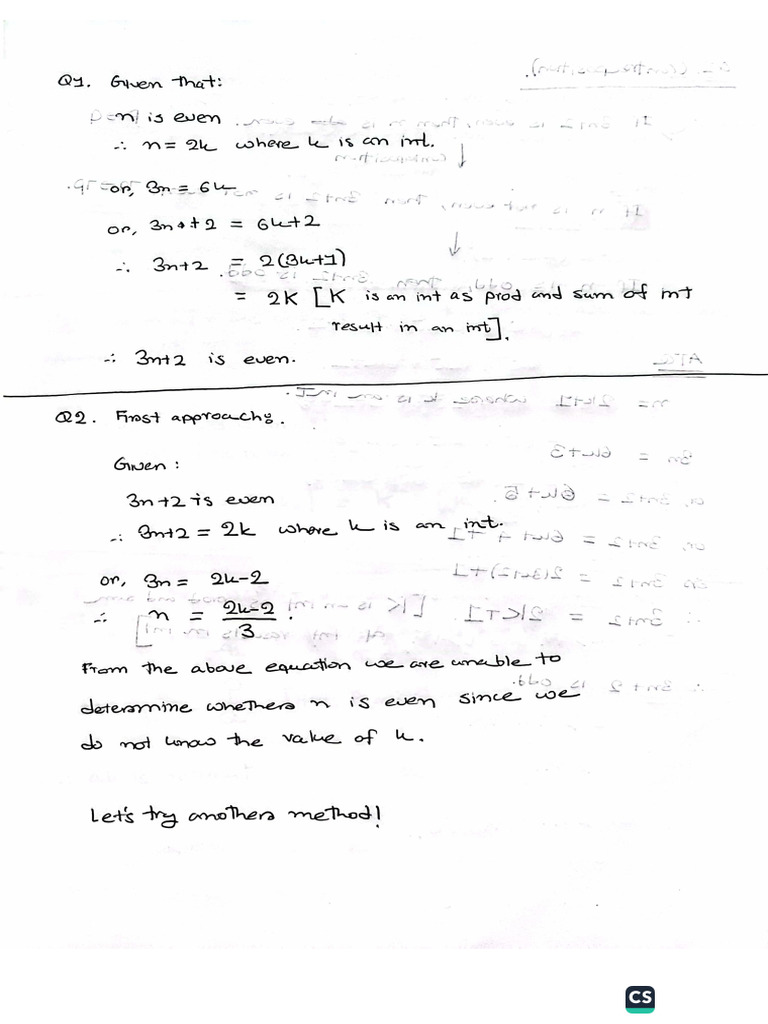 Q1. Given that:
n is even
∴ n = 2k where k is an int.
or, 3n = 6k
or, 3n + 2 = 6k+2
∴ 3n+2 = 2(3k+1)
= 2K [K is an int as prod and sum of int
result in an int].
∴ 3n+2 is even.
Q2. First approach:
Given:
3n+2 is even
∴ 3n+2 = 2k where k is an int.
or, 3n = 2k-2
∴ n = (2k-2)/3.
From the above equation we are unable to
determine whether n is even since we
do not know the value of k.
Let's try another method!
CS